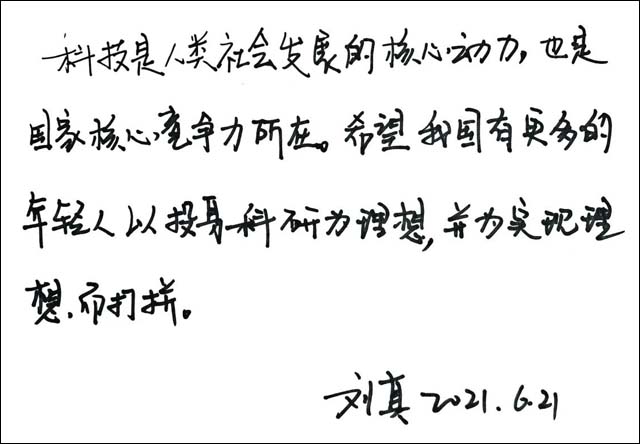 科技是人类社会发展的核心动力，也是
国家核心竞争力所在。希望我国有更多的
年轻人以投身科研为理想，并为实现理
想而打拼。
刘真 2021.6.21